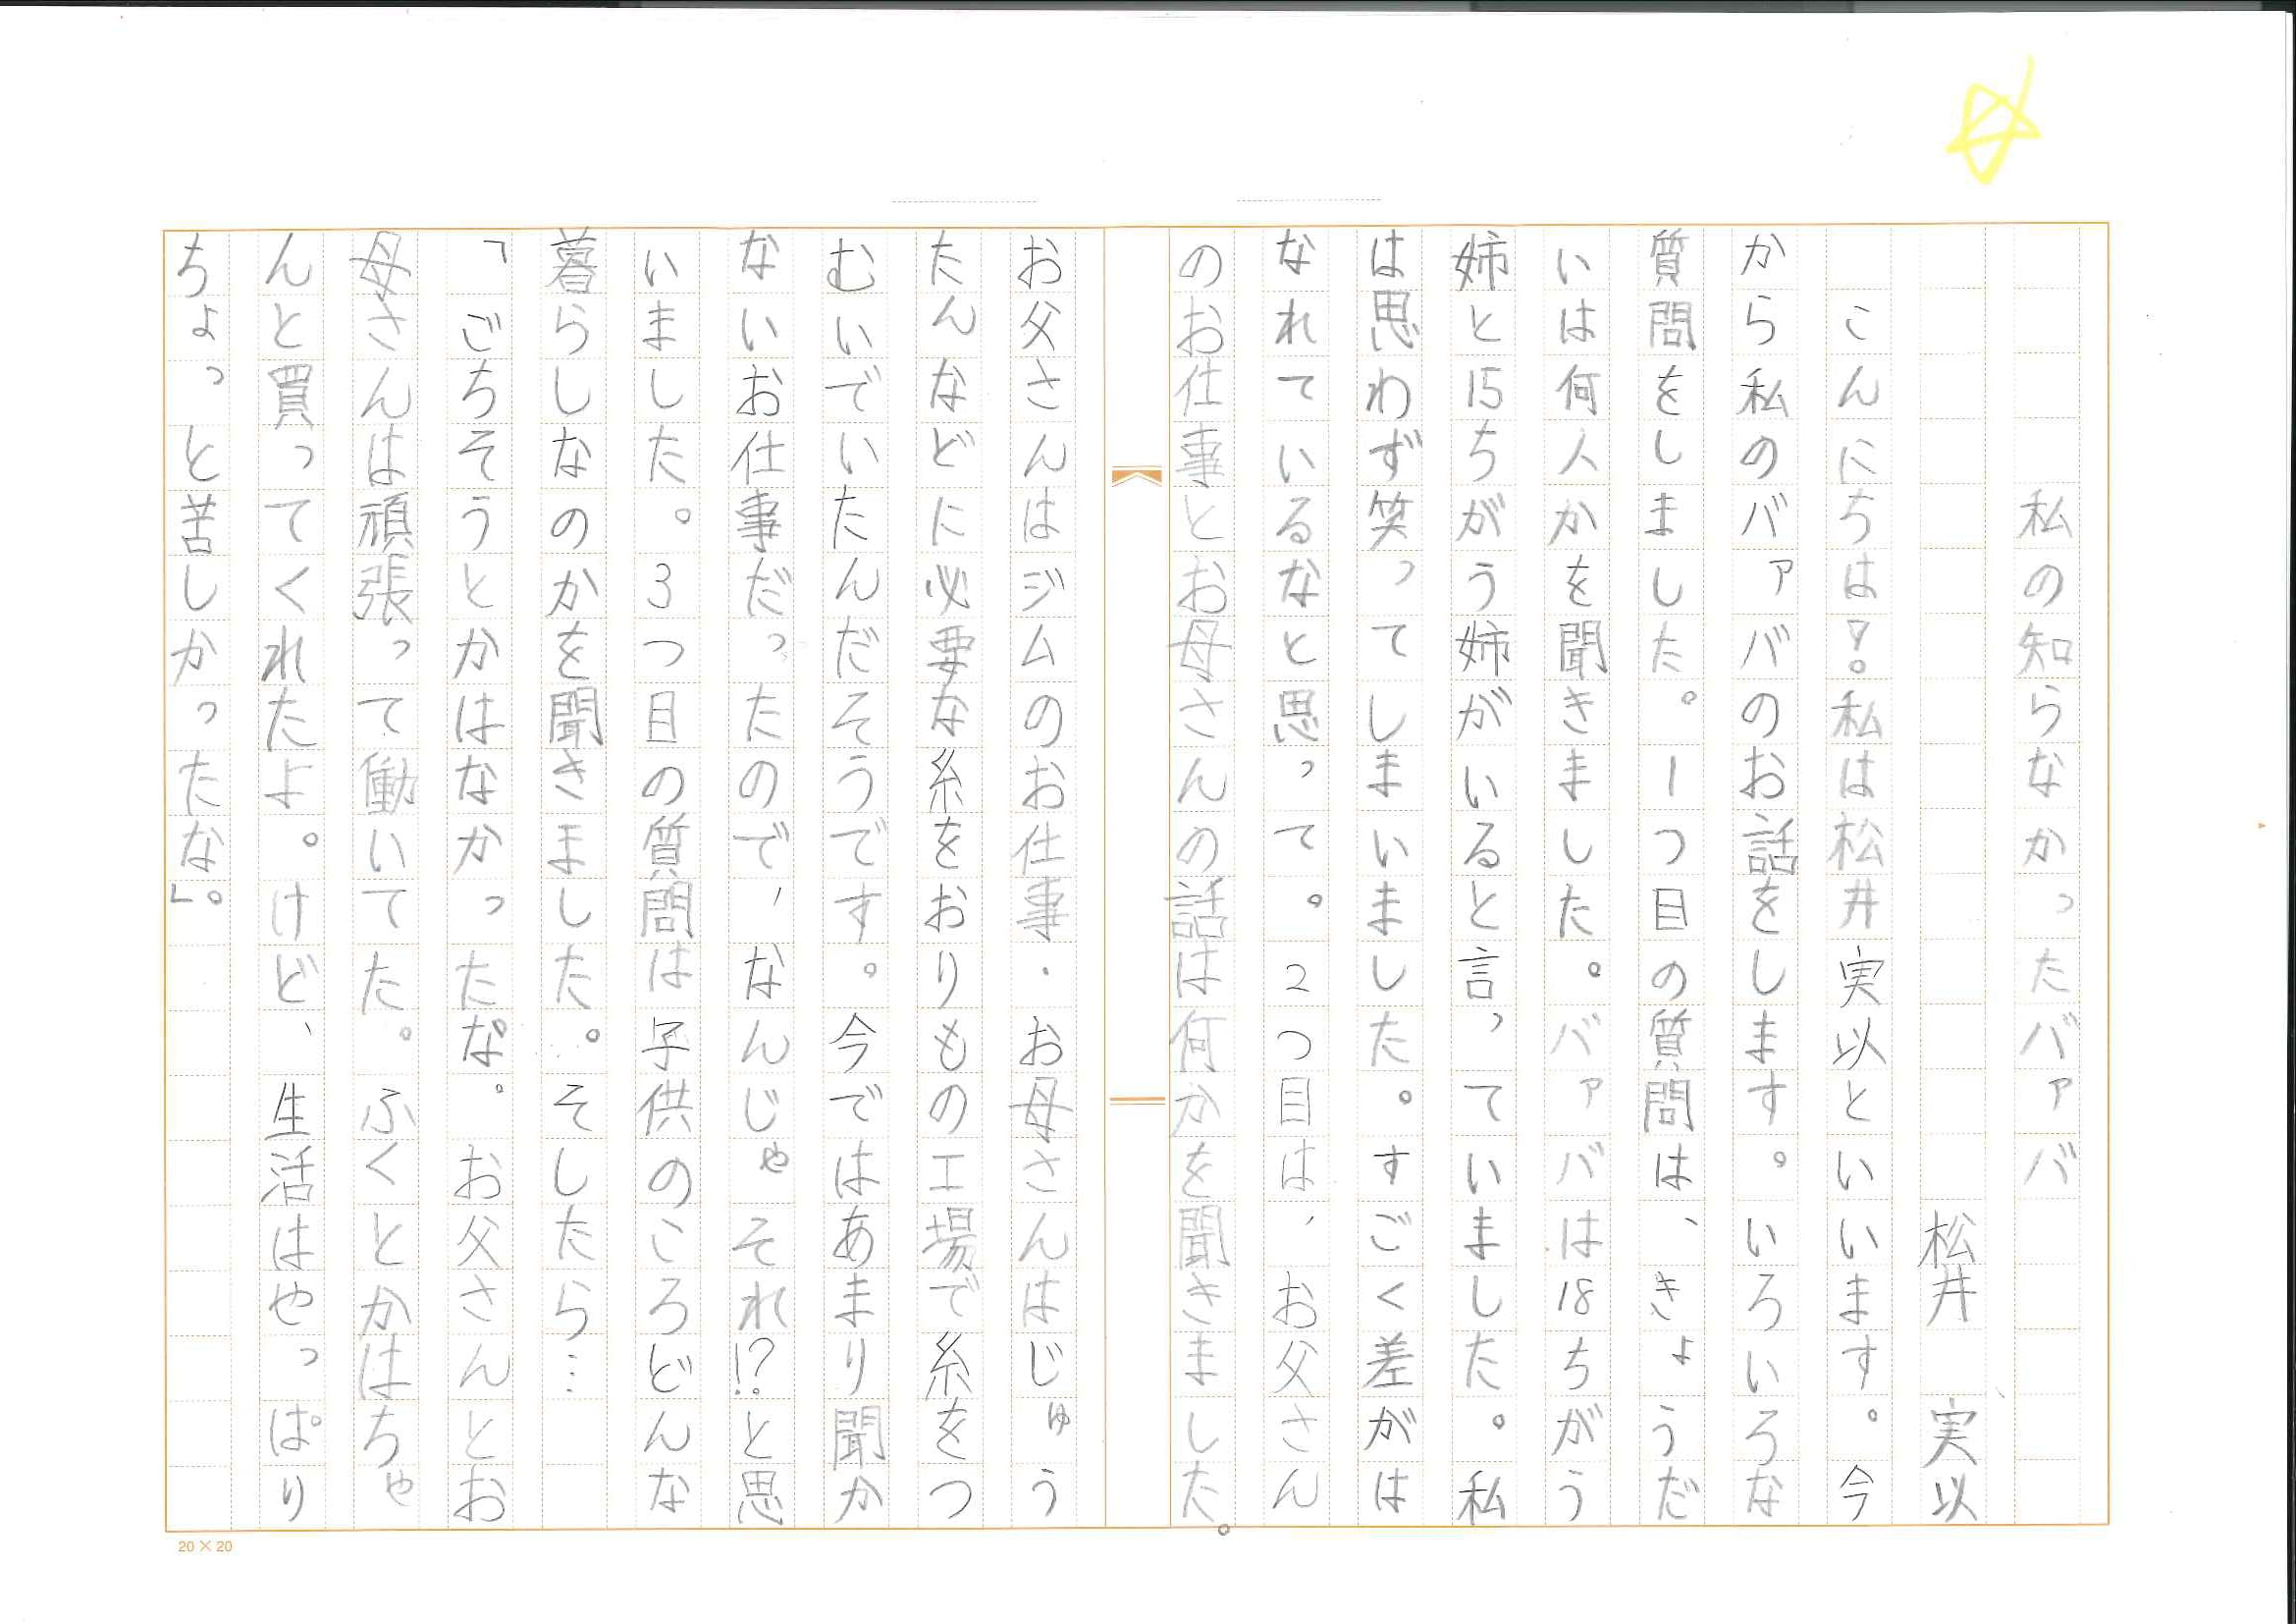 私の知らなかったバァバ
松井 実以
こんにちは!。私は松井実以といいます。今
から私のバァバのお話をします。いろいろな
質問をしました。1つ目の質問は、きょうだ
いは何人かを聞きました。バァバは18ちがう
姉と15ちがう姉がいると言っていました。私
は思わず笑ってしまいました。すごく差がは
なれているなと思って。2つ目は、お父さん
のお仕事とお母さんの話は何かを聞きました。
お父さんはジムのお仕事・お母さんはじゅう
たんなどに必要な糸をおりもの工場で糸をつ
むいでいたんだそうです。今ではあまり聞か
ないお仕事だったので、なんじゃそれ!?と思
いました。3つ目の質問は子供のころどんな
暮らしなのかを聞きました。そしたら…
「ごちそうとかはなかったな。お父さんとお
母さんは頑張って働いてた。ふくとかはちゃ
んと買ってくれたよ。けど、生活はやっぱり
ちょっと苦しかったな」。
20×20